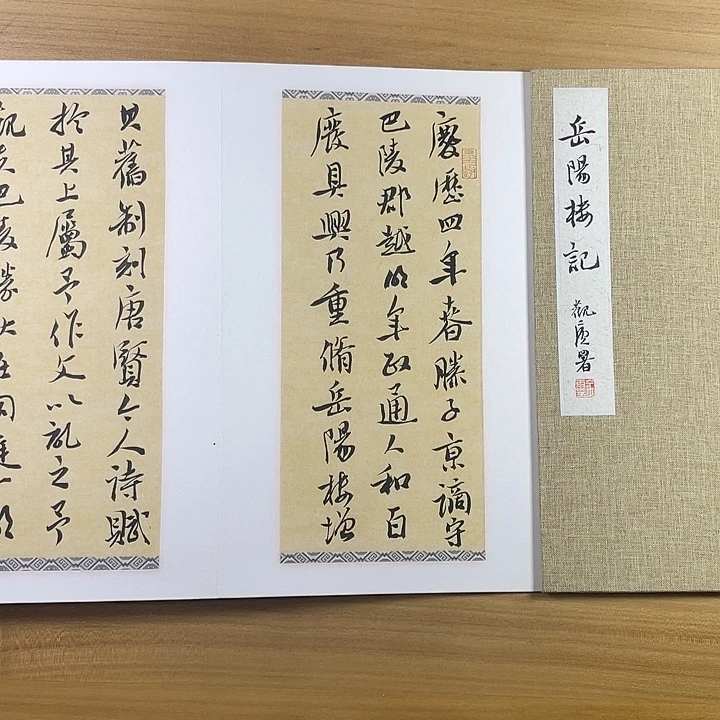 岳陽楼記
觀 署
慶歷四年春滕子京謫守
巴陵郡越明年政通人和百
廢具興乃重脩岳陽楼增
其舊制刻唐賢今人詩賦
於其上屬予作文以記之予
觀夫巴陵勝狀在洞庭一湖